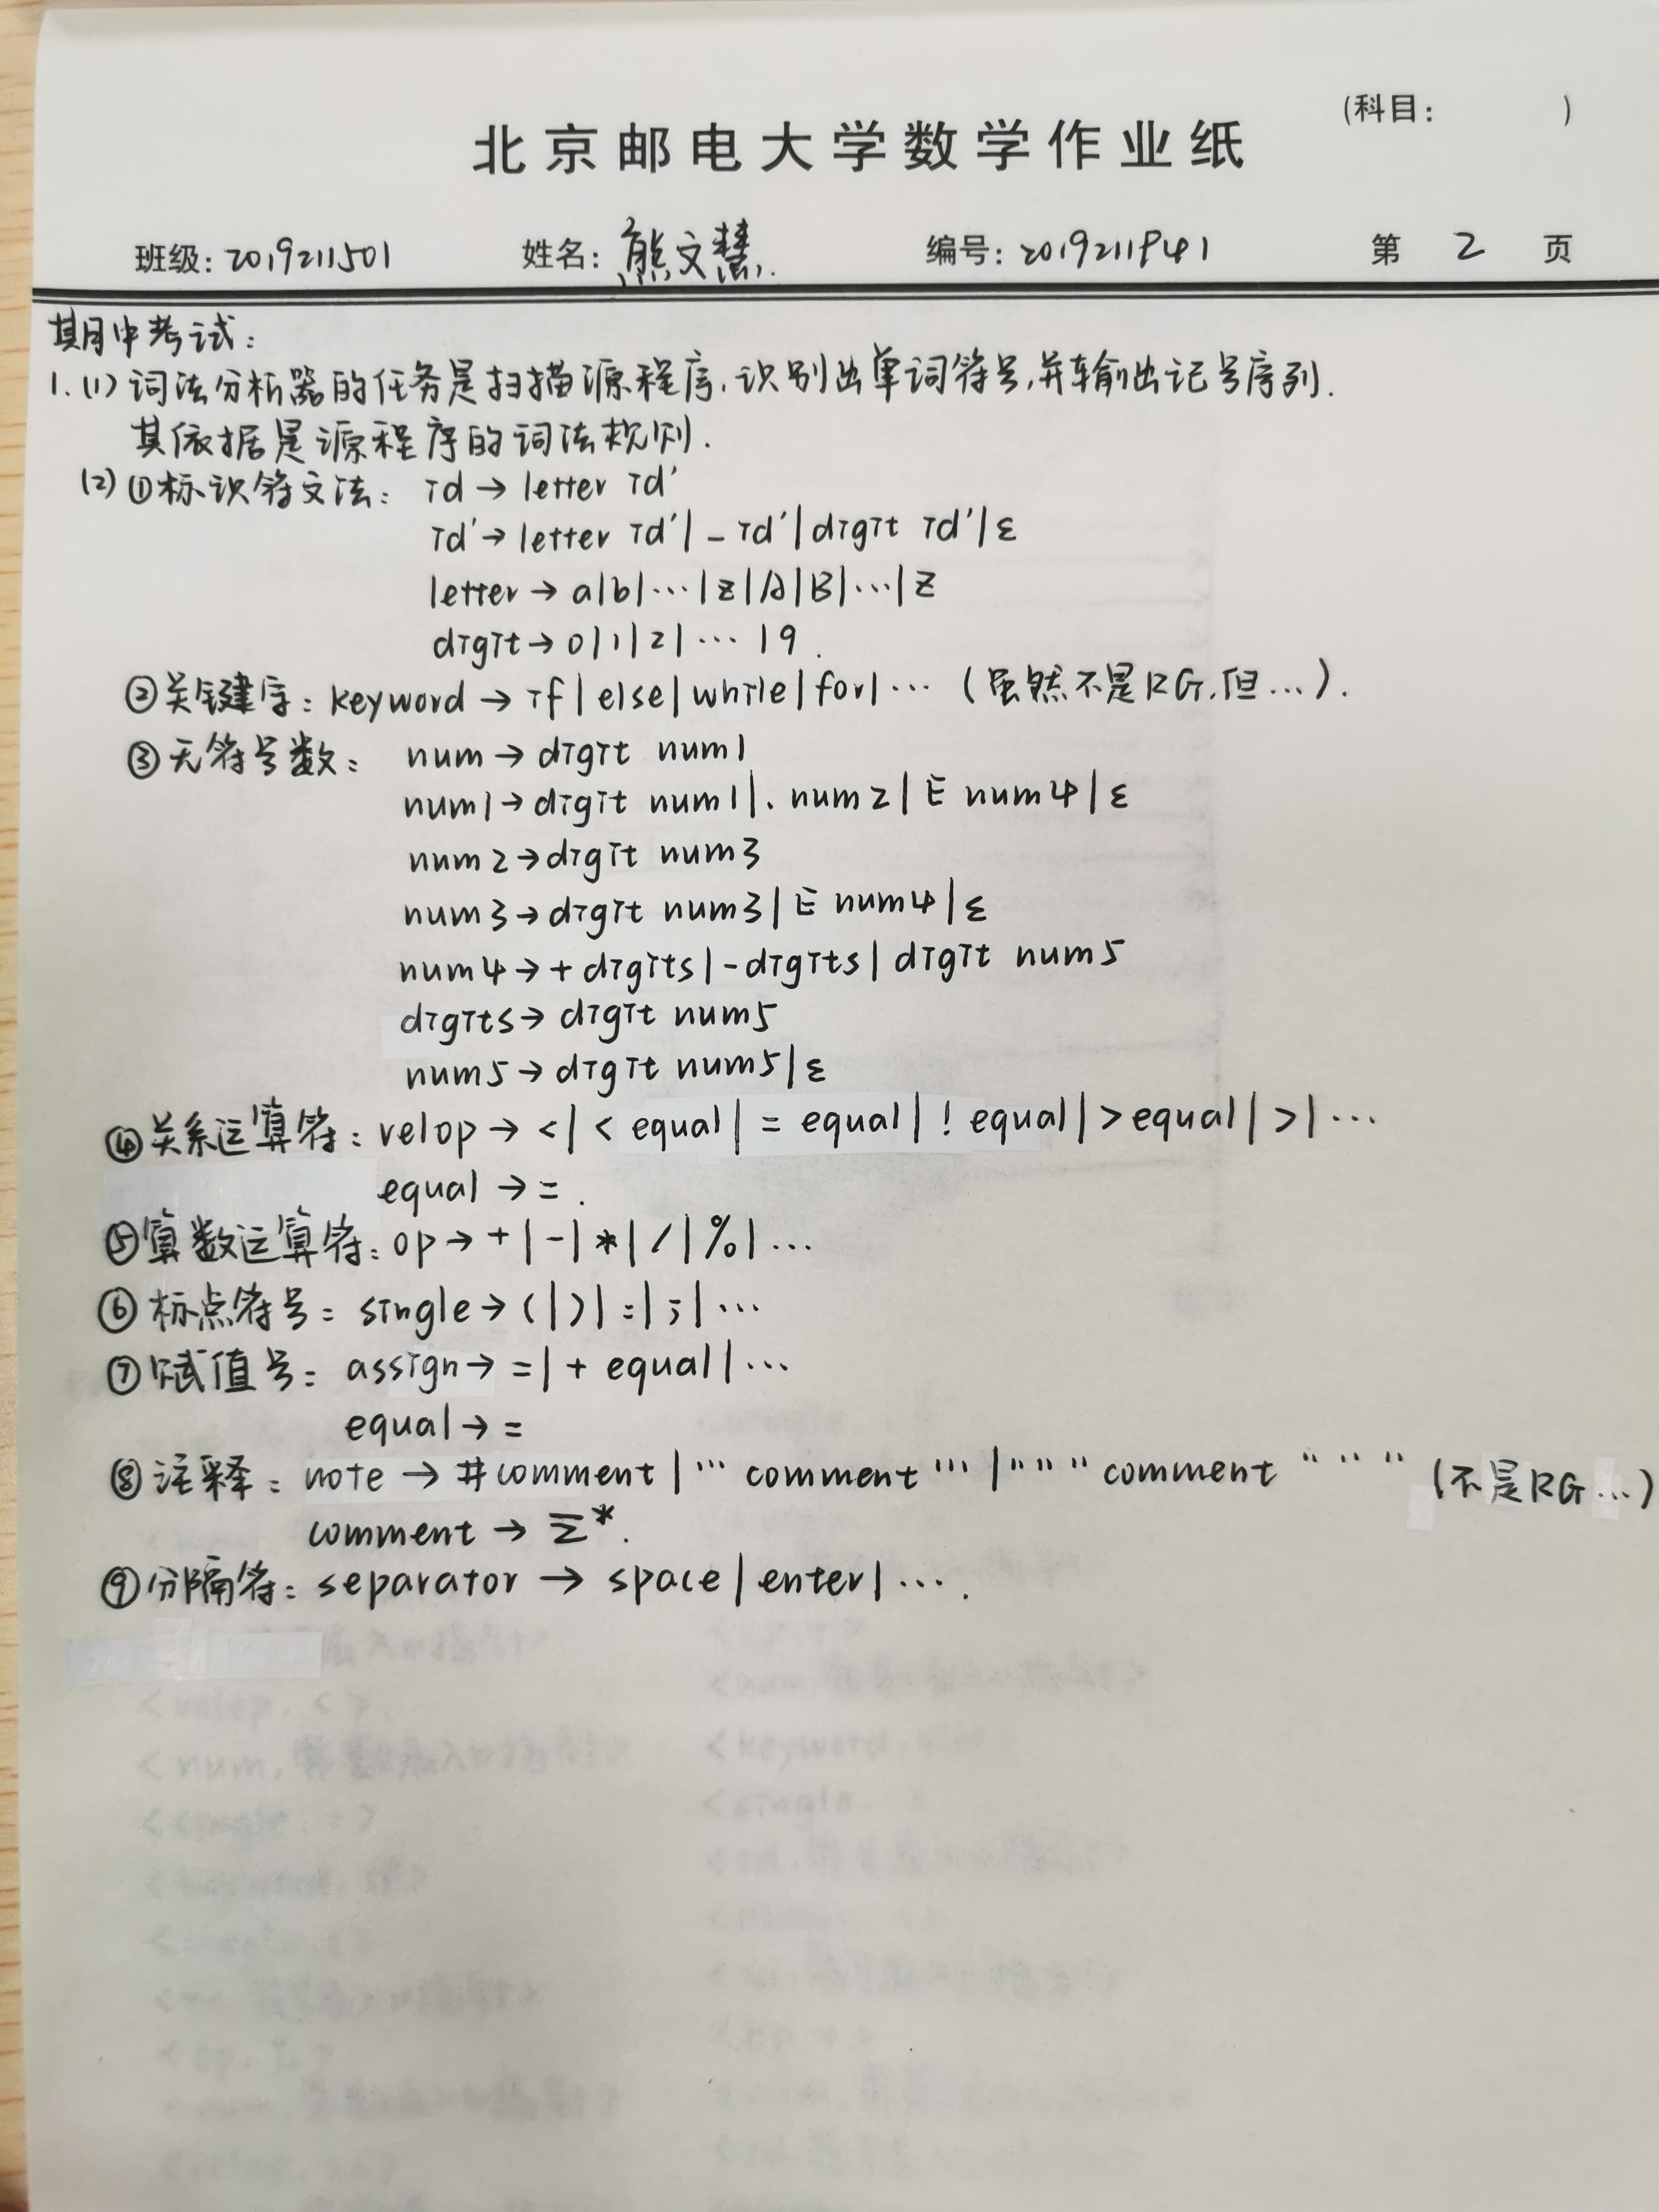 (科目: )
北京邮电大学数学作业纸
班级: 2019211501 姓名: 熊文慧 编号: 2019211941 第 2 页
期中考试:
1.(1) 词法分析器的任务是扫描源程序,识别出单词符号,并输出记号序列.
其依据是源程序的词法规则.
(2) ①标识符文法: id → letter id'
id' → letter id' | _ id' | digit id' | ε
letter → a|b|…|z|A|B|…|Z
digit → 0|1|2|…|9.
②关键字: keyword → if | else | while | for | … (虽然不是RG,但…).
③无符号数: num → digit num1
num1 → digit num1 | . num2 | E num4 | ε
num2 → digit num3
num3 → digit num3 | E num4 | ε
num4 → + digits | - digits | digit num5
digits → digit num5
num5 → digit num5 | ε
④关系运算符: relop → < | < equal | = equal | ! equal | > equal | > | …
equal → = .
⑤算数运算符: op → + | - | * | / | % | …
⑥标点符号: single → ( | ) | : | ; | …
⑦赋值号: assign → = | + equal | …
equal → =
⑧注释: note → #comment | ''' comment ''' | """ comment """ (不是RG…)
comment → Σ*.
⑨分隔符: separator → space | enter | … .